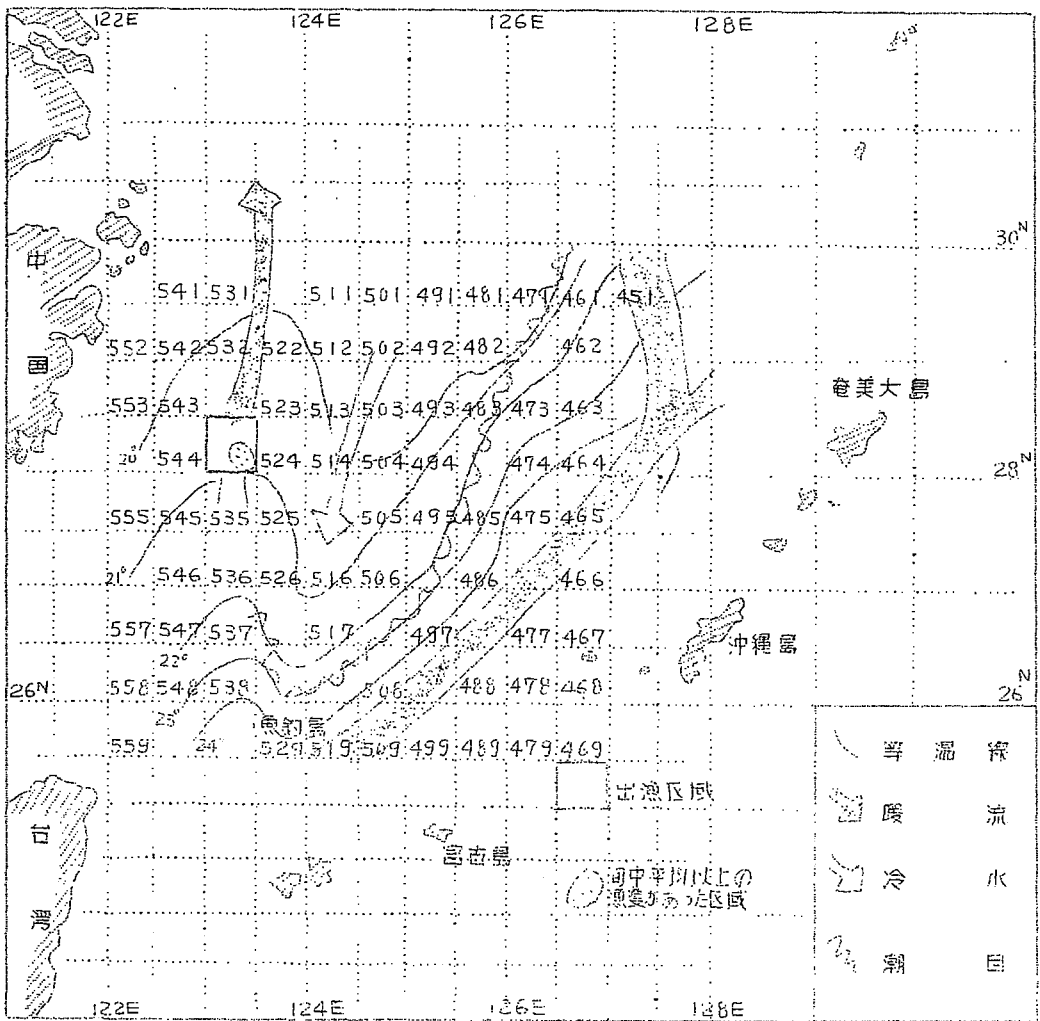 122E 124E 126E 128E
30N
中国
541 531 511 501 491 481 471 461 451
552 542 532 522 512 502 492 482 462
553 543 523 513 503 493 483 473 463
奄美大島
20°
544 524 514 504 494 474 464
28N
555 545 535 525 505 495 485 475 465
21°
546 536 526 516 506 486 466
557 547 537 517 497 477 467
沖縄島
22°
26N 558 548 538 488 478 468 26N
23°
魚釣島
559 24° 529 519 509 499 489 479 469
等温線
出漁区域
暖流
台湾
宮古島
冷水
漁獲があった区域
潮目
122E 124E 126E 128E